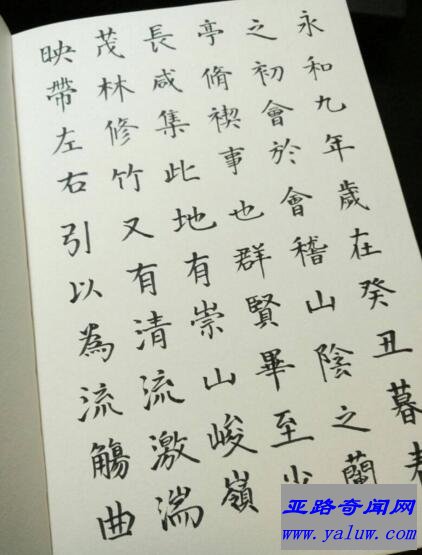 永和九年歲在癸丑暮春
之初會於會稽山陰之蘭
亭脩禊事也群賢畢至少
長咸集此地有崇山峻嶺
茂林修竹又有清流激湍
映帶左右引以為流觴曲
亚路奇闻网
www.yaluw.com